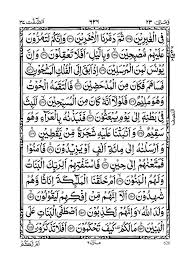 فِي الْغٰبِرِيْنَ ۝ ثُمَّ دَمَّرْنَا الْاٰخَرِيْنَ ۝ وَاِنَّكُمْ لَتَمُرُّوْنَ
عَلَيْهِمْ مُّصْبِحِيْنَ ۝ وَبِالَّيْلِ ؕ اَفَلَا تَعْقِلُوْنَ ۝ وَاِنَّ
يُوْنُسَ لَمِنَ الْمُرْسَلِيْنَ ۝ اِذْ اَبَقَ اِلَى الْفُلْكِ الْمَشْحُوْنِ ۝
فَسَاهَمَ فَكَانَ مِنَ الْمُدْحَضِيْنَ ۝ فَالْتَقَمَهُ الْحُوْتُ وَ
هُوَ مُلِيْمٌ ۝ فَلَوْلَاۤ اَنَّهٗ كَانَ مِنَ الْمُسَبِّحِيْنَ ۝ لَلَبِثَ
فِيْ بَطْنِهٖۤ اِلٰى يَوْمِ يُبْعَثُوْنَ ۝ فَنَبَذْنٰهُ بِالْعَرَآءِ وَهُوَ
سَقِيْمٌ ۝ وَاَنْۢبَتْنَا عَلَيْهِ شَجَرَةً مِّنْ يَّقْطِيْنٍ ۝ وَ
اَرْسَلْنٰهُ اِلٰى مِائَةِ اَلْفٍ اَوْ يَزِيْدُوْنَ ۝ فَاٰمَنُوْا
فَمَتَّعْنٰهُمْ اِلٰى حِيْنٍ ۝ فَاسْتَفْتِهِمْ اَلِرَبِّكَ الْبَنَاتُ
وَلَهُمُ الْبَنُوْنَ ۝ اَمْ خَلَقْنَا الْمَلٰٓئِكَةَ اِنَاثًا وَّهُمْ
شٰهِدُوْنَ ۝ اَلَاۤ اِنَّهُمْ مِّنْ اِفْكِهِمْ لَيَقُوْلُوْنَ ۝
وَلَدَ اللّٰهُ ۙ وَاِنَّهُمْ لَكٰذِبُوْنَ ۝ اَصْطَفَى الْبَنَاتِ عَلَى
الْبَنِيْنَ ۝ مَا لَكُمْ كَيْفَ تَحْكُمُوْنَ ۝ اَفَلَا تَذَكَّرُوْنَ ۝
اَمْ لَكُمْ